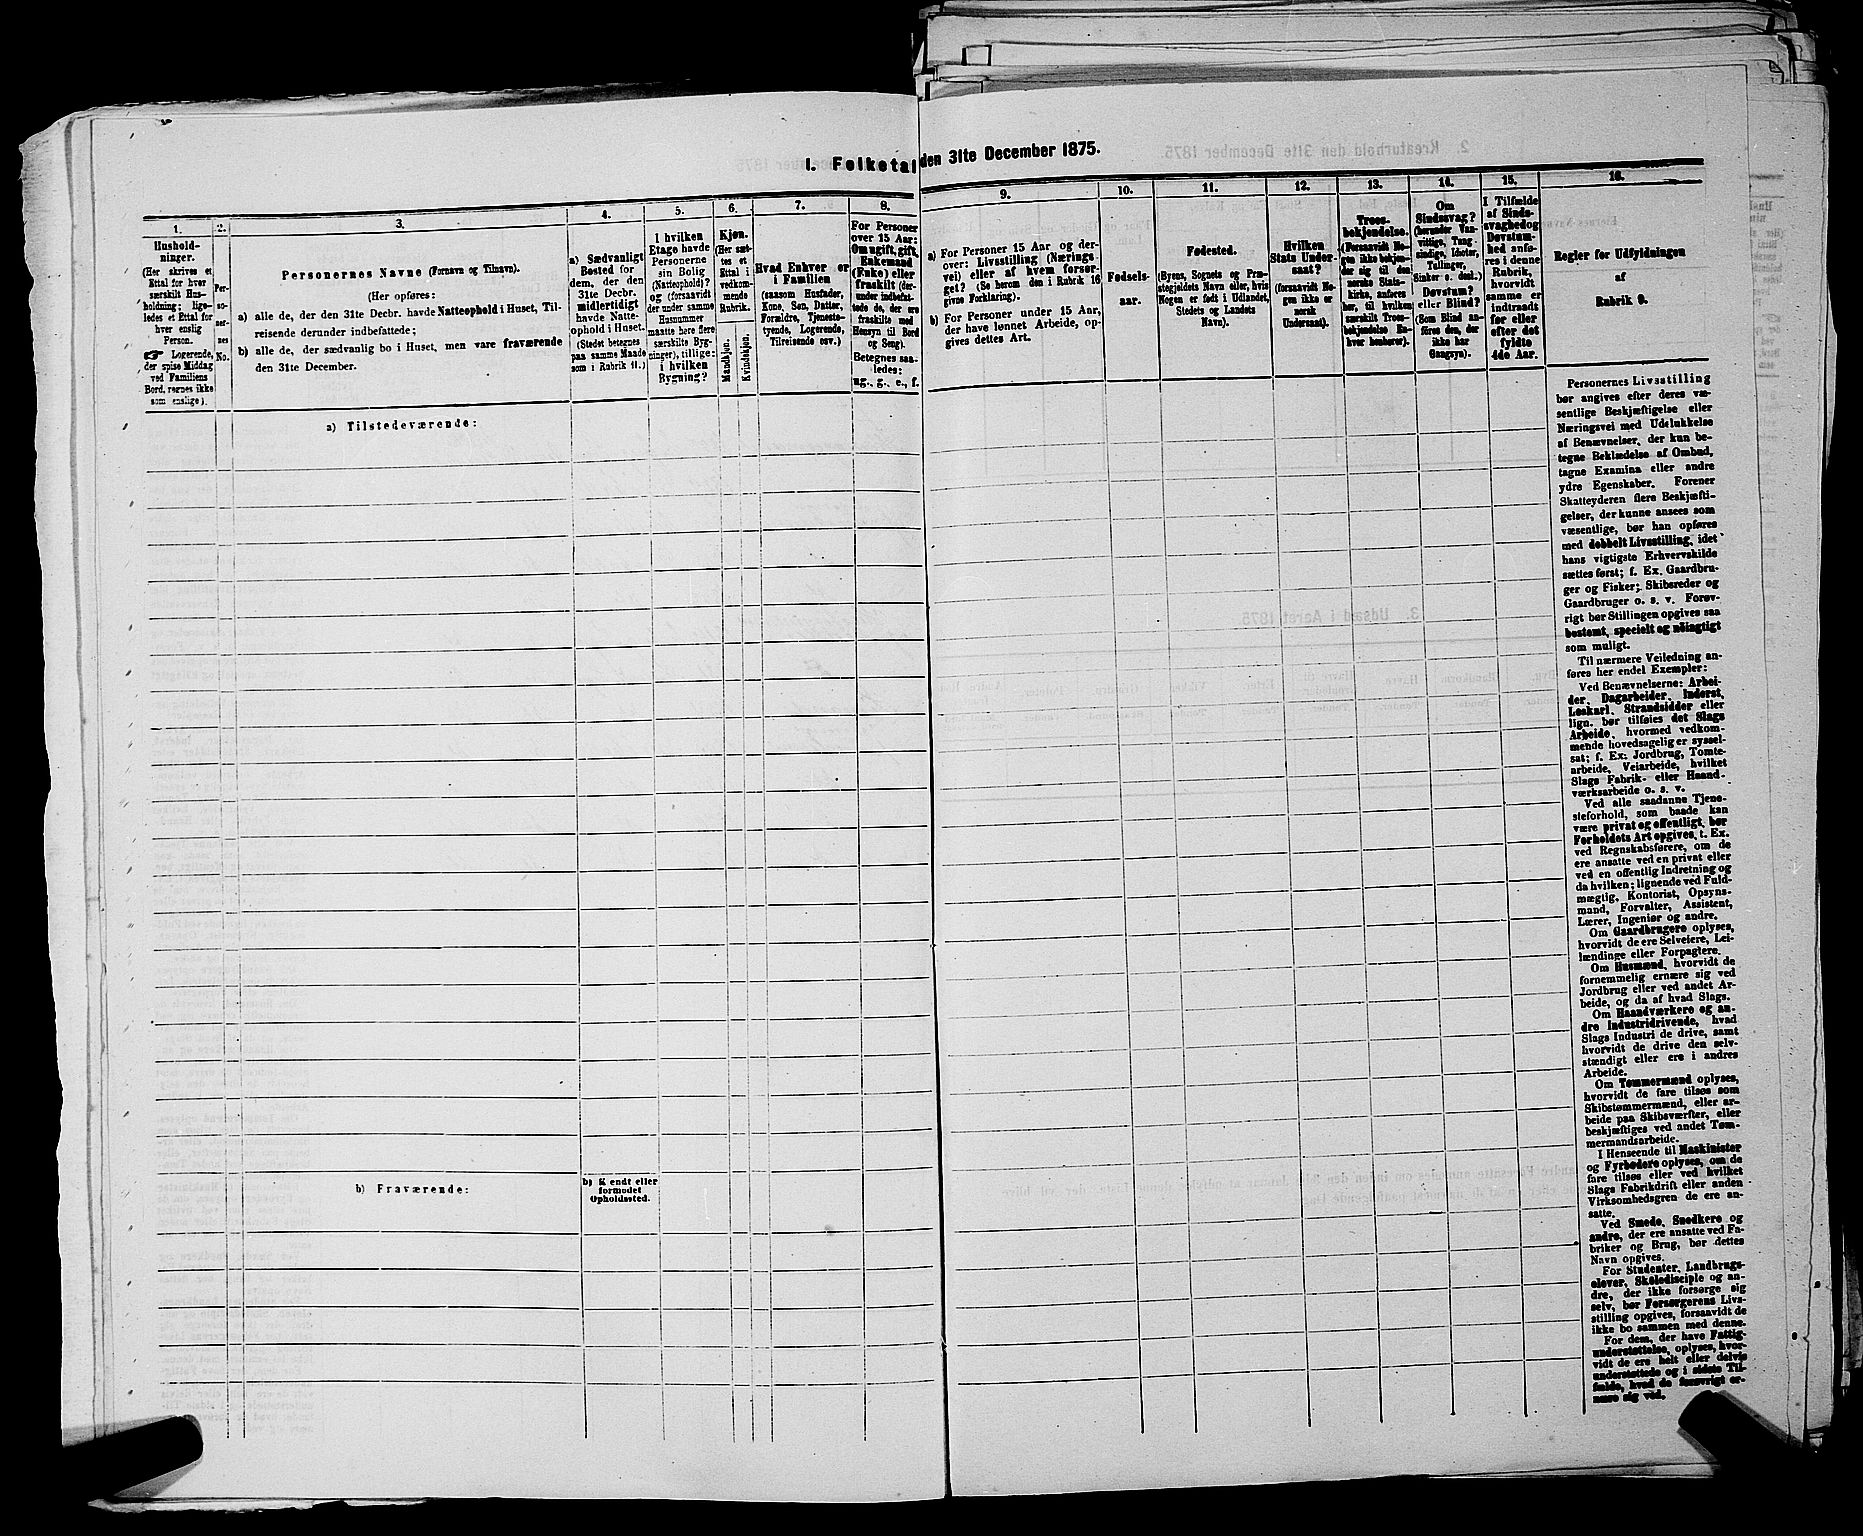 1. Folketal den 31te December 1875.
1.
Hushold-
ninger.
(Her skrives et
Ettal for hver
særskilt Hus-
holdning; lige-
ledes et Ettal for
hver enslig
Person.
☞ Logerende,
der spise Middag
ved Familiens
Bord, regnes ikke
som enslige).
2.
Per-
so-
ner-
nes
No.
3.
Personernes Navne (Fornavn og Tilnavn).
(Her opføres:
a) alle de, der den 31te Decbr. havde Natteophold i Huset, Til-
reisende derunder indbefattede;
b) alle de, der sædvanlig bo i Huset, men vare fraværende
den 31te December.
4.
a) Sædvanligt
Bosted for
dem, der den
31te Decbr.
midlertidigt
havde Natte-
ophold i Huset.
(Stedet betegnes
paa samme Maade
som i Rubrik 11.)
5.
I hvilken
Etage havde
Personerne
sin Bolig
(Natteophold)?
og (forsaavidt
der under samme
Husnummer
maatte høre flere
særskilte Byg-
ninger), tillige:
i hvilken
Bygning?
6.
Kjøn.
(Her sæt-
tes et
Ettal i
vedkom-
mende
Rubrik.
Mandkjøn.
Kvindekjøn.
7.
Hvad Enhver er
i Familien
(saasom Husfader,
Kone, Søn, Datter,
Forældre, Tjeneste-
tyende, Logerende,
Tilreisende osv.)
8.
For Personer
over 15 Aar:
Om ugift, gift,
Enkemand
(Enke) eller
fraskilt (der-
under indbefat-
tede de, der ere
fraskilte med
Hensyn til Bord
og Seng).
Betegnes saa-
ledes:
ug., g., e., f.
9.
a) For Personer 15 Aar og der-
over: Livsstilling (Nærings-
vei) eller af hvem forsør-
get? (Se herom den i Rubrik 16
givne Forklaring).
b) For Personer under 15 Aar,
der have lønnet Arbeide, op-
gives dettes Art.
10.
Fødsels-
aar.
11.
Fødested.
(Byens, Sognets og Præ-
stegjeldets Navn eller, hvis
Nogen er født i Udlandet,
Stedets og Landets
Navn).
12.
Hvilken
Stats Under-
saat?
(forsaavidt No-
gen ikke er
norsk
Undersaat).
13.
Troes-
bekjendelse.
(Forsaavidt No-
gen ikke bekjen-
der sig til den
norske Stats-
kirke, anføres
her, til hvilken
særskilt Troes-
bekjendelse En-
hver henhører).
14.
Om
Sindssvag?
(herunder Van-
vittige, Tung-
sindige, Idioter,
Tullinger,
Sinker o. desl.)
Døvstum?
eller Blind?
(Som Blind an-
føres den, der
ikke har
Gangsyn).
15.
I Tilfælde
af Sinds-
svaghed og
Døvstum-
hed anfø-
res i denne
Rubrik,
hvorvidt
samme er
indtraadt
før eller
efter det
fyldte
4de Aar.
16.
Regler for Udfyldningen
af
Rubrik 9.
a) Tilstedeværende:
b) Fraværende:
b) Kjendt eller
formodet
Opholdssted.
Personernes Livsstilling
bør angives efter deres væ-
sentlige Beskjæftigelse eller
Næringsvei med Udelukkelse
af Benævnelser, der kun be-
tegne Beklædelse af Ombud,
tagne Examina eller andre
ydre Egenskaber. Forener
Skatteyderen flere Beskjæfti-
gelser, der kunne ansees som
væsentlige, bør han opføres
med dobbelt Livsstilling, idet
hans vigtigste Erhvervskilde
sættes først; f. Ex. Gaardbru-
ger og Fisker; Skibsreder og
Gaardbruger o. s. v. Forøv-
rigt bør Stillingen opgives saa
bestemt, specielt og nøiagtigt
som muligt.
Til nærmere Veiledning an-
føres her endel Exempler:
Ved Benævnelserne: Arbei-
der, Dagarbeider, Inderst,
Løskarl, Strandsidder eller
lign. bør tilføies det Slags
Arbeide, hvormed vedkom-
mende hovedsagelig er syssel-
sat; f. Ex. Jordbrug, Tomte-
arbeide, Veiarbeide, hvilket
Slags Fabrik- eller Haand-
værksarbeide o. s. v.
Ved alle saadanne Tjene-
steforhold, som baade kan
være privat og offentligt, bør
Forholdets Art opgives, f. Ex.
ved Regnskabsførere, om de
ere ansatte ved en privat eller
ved en offentlig Indretning og
da hvilken; lignende ved Fuld-
mægtig, Kontorist, Opsyns-
mand, Forvalter, Assistent,
Lærer, Ingeniør og andre.
Om Gaardbrugere oplyses,
hvorvidt de ere Selveiere, Lei-
lændinge eller Forpagtere.
Om Husmænd, hvorvidt de
fornemmelig ernære sig ved
Jordbrug eller ved andet Ar-
beide, og da af hvad Slags.
Om Haandværkere og an-
dre Industridrivende, hvad
Slags Industri de drive, samt
hvorvidt de drive den selv-
stændigt eller ere i andres
Arbeide.
Om Tømmermænd oplyses,
hvorvidt de fare tilsøs som
Skibstømmermænd, eller ar-
beide paa Skibsværfter, eller
beskjæftiges ved andet Tøm-
mermandsarbeide.
I Henseende til Maskinister
og Fyrbødere oplyses, om de
fare tilsøs eller ved hvilket
Slags Fabrikdrift eller anden
Virksomhedsgren de ere an-
satte.
Ved Smede, Snedkere og
andre, der ere ansatte ved Fa-
briker og Brug, bør dettes
Navn opgives.
For Studenter, Landbrugs-
elever, Skoledisciple og an-
dre, der ikke forsørge sig
selv, bør Forsørgerens Livs-
stilling opgives, forsaavidt de
ikke bo sammen med denne.
For dem, der have Fattig-
understøttelse, oplyses, hvor-
vidt de ere helt eller delvis
understøttede og i sidste Til-
fælde, hvad de forøvrigt er-
nære sig ved.